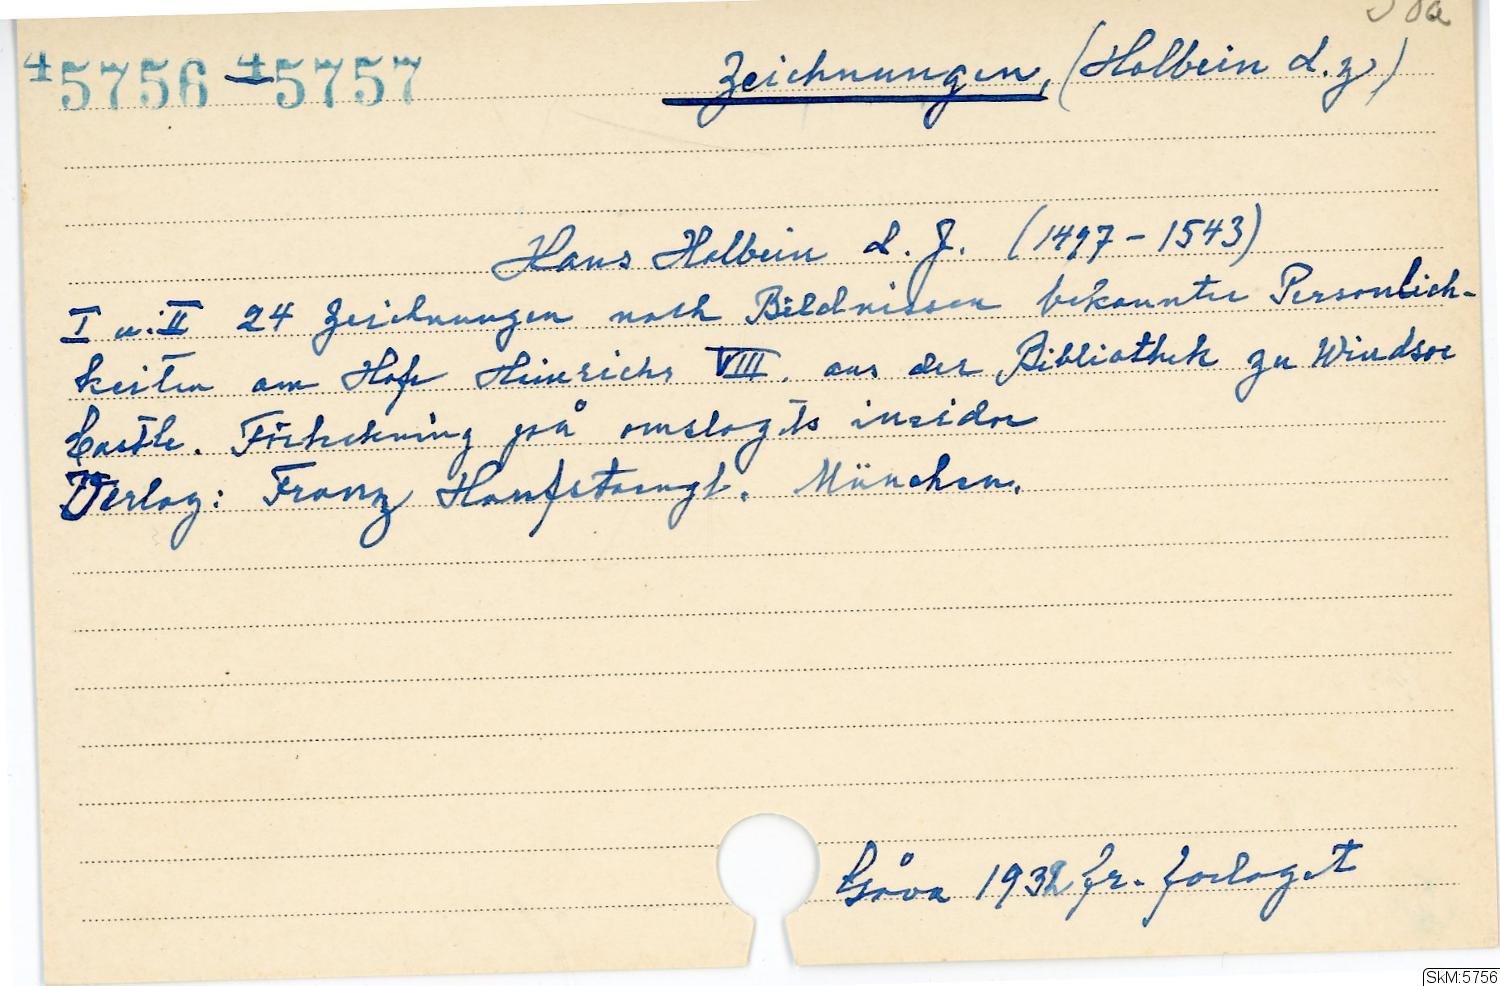 45756 - 45757
Zeichnungen, (Holbein d. y.)
Hans Holbein d. J. (1497 - 1543)
I u. II 24 Zeichnungen nach Bildnissen bekannter Personlich-
keiten am Hofe Heinrichs VIII. aus der Bibliothek zu Windsor
Castle. Förteckning på omslagets insidor
Verlag: Franz Hanfstaengl. München.
Gåva 1932 fr. förlaget
SkM:5756